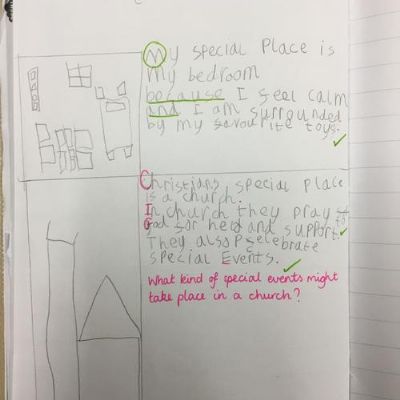 My special Place is
my bedroom
because I feel calm
and I am surrounded
by my favourite toys.
Christians special place
is a church.
In church they pray to
God for help and support.
They also celebrate
special Events.
What kind of special events might
take place in a church?